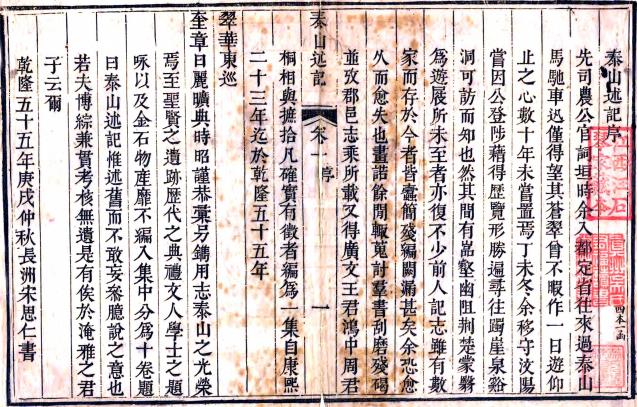 泰山述記序
四本一函
先司農公官詞垣時余入都定省往來過泰山
馬馳車迅僅得望其蒼翠曾不暇作一日遊仰
止之心數十年未嘗置焉丁未冬余移守汶陽
嘗因公登陟藉得歷覽形勝遍尋往躅崖泉谿
洞可訪而知也然其間有嵓壑幽阻荆楚蒙翳
爲遊屐所未至者亦復不少前人記志雖有數
家而存於今者皆蠹簡殘編闕漏甚矣余恐愈
久而愈失也畫諾餘閒輒蒐討羣書刮磨殘碣
並攷郡邑志乘所載又得廣文王君鴻中周君
泰山述記 卷一 序 一
桐相與摭拾凡確實有徵者編爲一集自康熙
二十三年迄於乾隆五十五年
翠華東巡
奎章日麗曠典時昭謹恭彔另鐫用志泰山之光榮
焉至聖賢之遺跡歷代之典禮文人學士之題
咏以及金石物産靡不編入集中分爲十卷題
曰泰山述記惟述舊而不敢妄叅臆說之意也
若夫博綜兼貫考核無遺是有俟於淹雅之君
子云爾
乾隆五十五年庚戌仲秋長洲宋思仁書